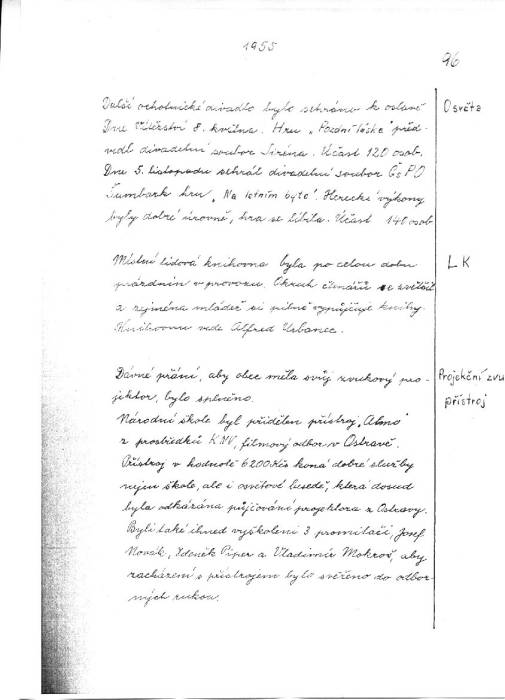 1955
96
Další ochotnické divadlo bylo sehráno k oslavě
Dne vítězství 8. května. Hru „Pozdní láska" před-
vedl divadelní soubor Siréna. Účast 120 osob.
Dne 5. listopadu sehrál divadelní soubor ČSPO
Šumbark hru „Na letním bytě". Herecké výkony
byly dobré úrovně, hra se líbila. Účast 140 osob
Osvěta
Místní lidová knihovna byla po celou dobu
prázdnin v provozu. Okruh čtenářů se zvětšil
a zejména mládež si pilně vypůjčuje knihy.
Knihovnu vede Alfred Urbanec.
LK
Dávné přání, aby obec měla svůj zvukový pro-
jektor, bylo splněno.
Národní škole byl přidělen přístroj „Almo"
z prostředků KNV, filmový odbor v Ostravě.
Přístroj v hodnotě 6200 Kčs koná dobré služby
nejen škole, ale i osvětové besedě, která dosud
byla odkázána půjčování projektoru z Ostravy.
Byli také ihned vyškoleni 3 promítači, Josef
Novák, Zdeněk Piper a Vladimír Mokroš, aby
zacházení s přístrojem bylo svěřeno do odbor-
ných rukou.
Projekční zvu
přístroj